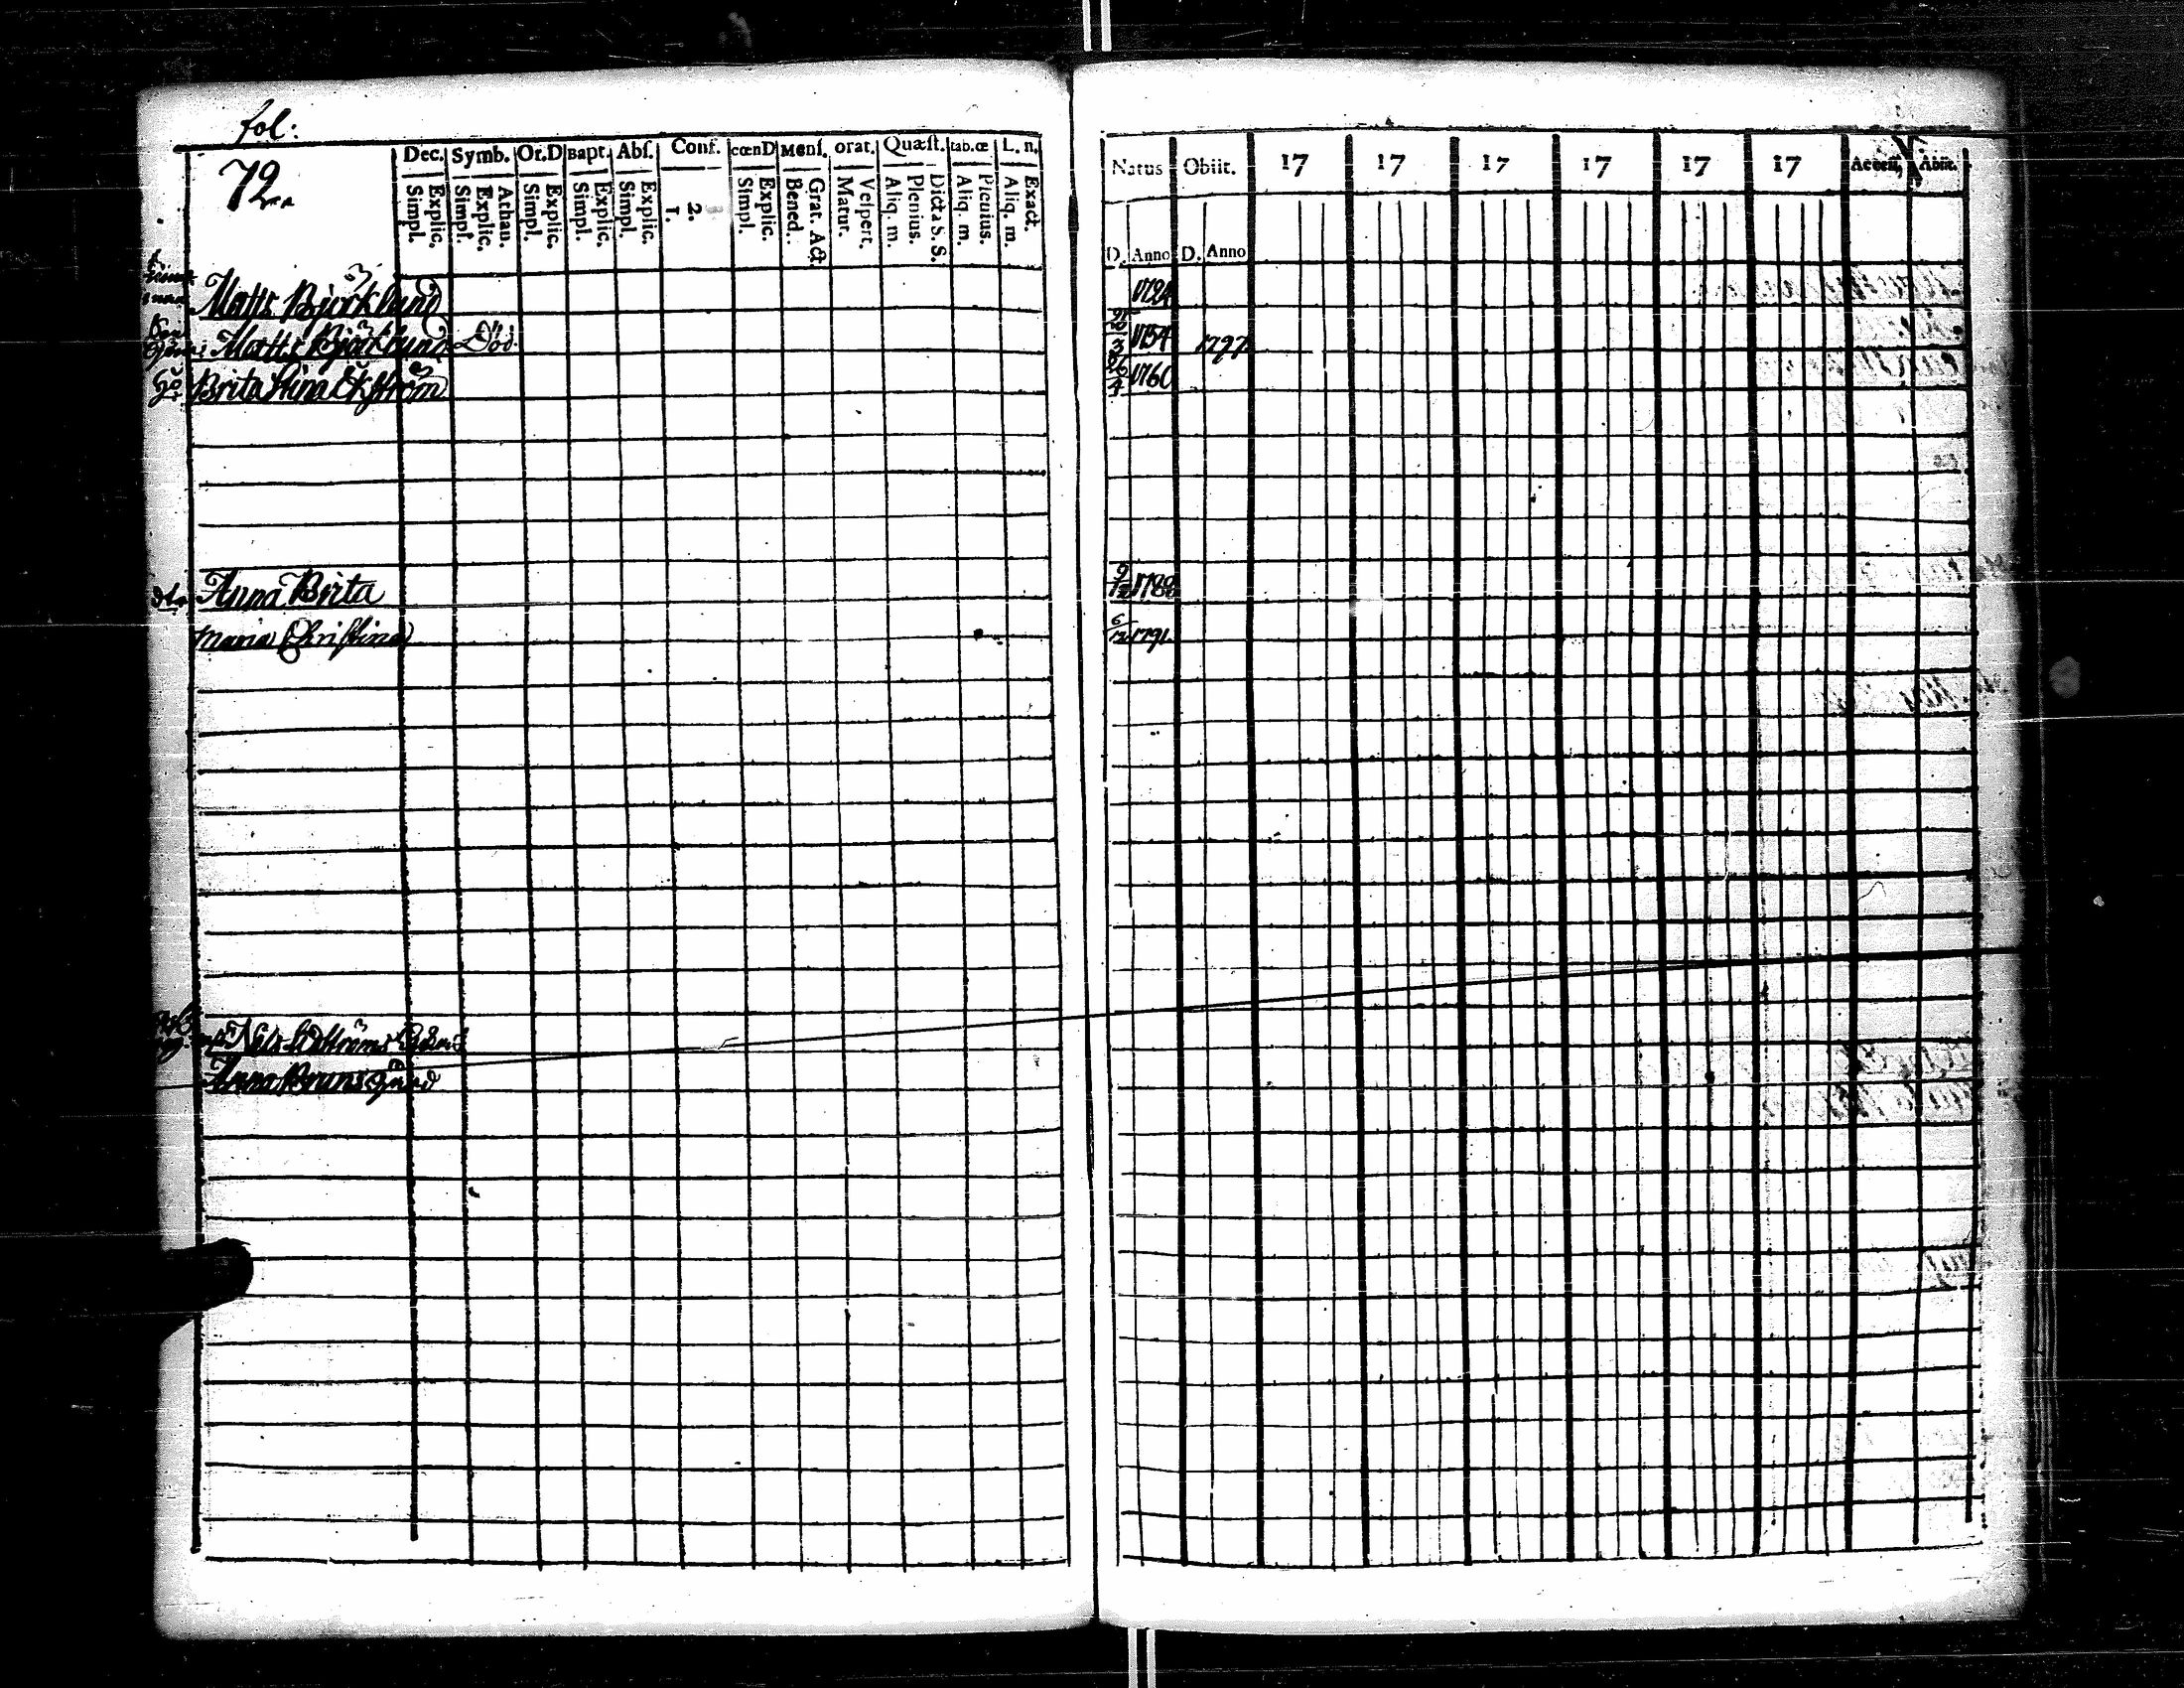 fol:
72
Dec. Symb. Or.D Bapt. Abſ. Conf. cœnD Menſ. orat. Quæſt. tab.œ L. n.
Simpl. Explic. Simpl. Explic. Athan. Simpl. Explic. Simpl. Explic. Simpl. Explic. 1. 2. Simpl. Explic. Bened. Grat. Act. Matut. Veſpert. Aliq. m. Plenius. Dicta S. S. Aliq. m. Plenius. Aliq. m. Exact.
Natus Obiit. 17 17 17 17 17 17 Acceſſ, Abiit.
D. Anno D. Anno
Matts Björklund 1724
Matts Björklund Död 1754 1797
Brita Stina Ekström 26/4 1760
Anna Brita 9/12 1788
Maria Christina 6/12 1791
Nils
Anna